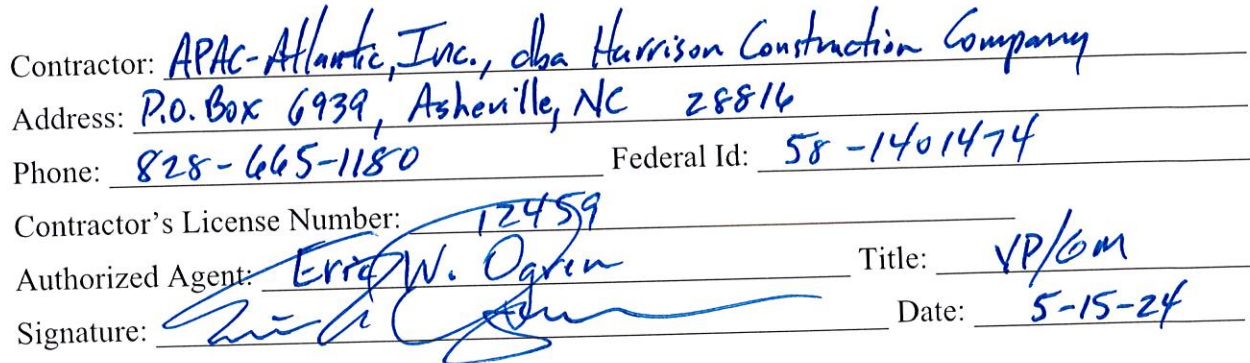 Contractor: APAC-Atlantic, Inc., dba Harrison Construction Company
Address: P.O. Box 6939, Asheville, NC 28816
Phone: 828-665-1180 Federal Id: 58-1401474
Contractor's License Number: 12459
Authorized Agent: Eric W. Ogren Title: VP/GM
Signature: Date: 5-15-24